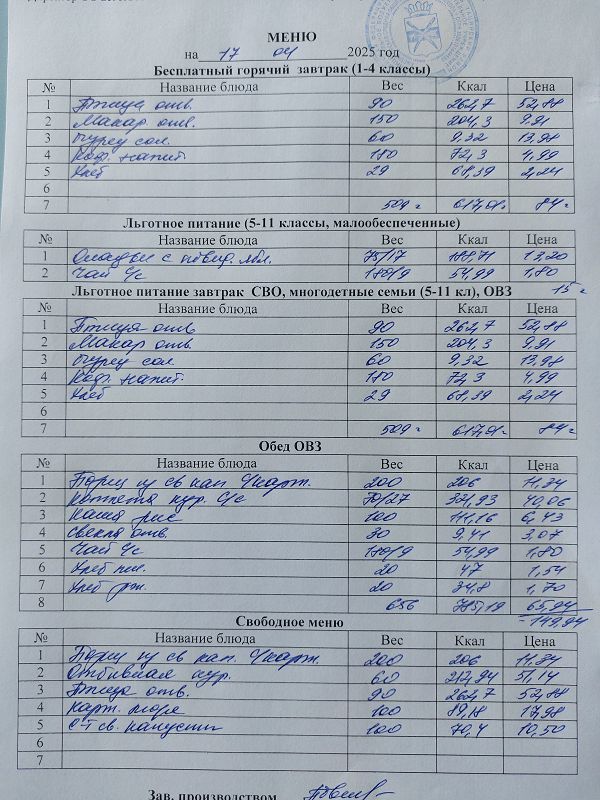 МЕНЮ
на 17 04 2025 год
Бесплатный горячий завтрак (1-4 классы)
№ Название блюда Вес Ккал Цена
1 Птица отв. 90 262,7 52,88
2 Макар отв. 150 204,3 9.91
3 огурец сол. 60 9.32 13,98
4 Коф. напит 180 72,3 4,99
5 Хлеб 29 68,39 2,24
6
7 509 г 617,01 84 г
Льготное питание (5-11 классы, малообеспеченные)
№ Название блюда Вес Ккал Цена
1 Оладьи с повид. ябл. 75/17 13,20
2 Чай с/с 180/9 54,99 1,80
Льготное питание завтрак СВО, многодетные семьи (5-11 кл), ОВЗ 15 г
№ Название блюда Вес Ккал Цена
1 Птица отв 90 262,7 52,88
2 Макар отв. 150 204.3 9.91
3 огурец сол 60 9.32 13,98
4 Коф. напит 180 72,3 4,99
5 Хлеб 29 68,39 2,24
6
7 509 г 617,01 84 г
Обед ОВЗ
№ Название блюда Вес Ккал Цена
1 Борщ из св кап с/карт. 200 206 11.34
2 Котлета кур. с/с 70/27 321,93 40,06
3 Каша рис 100 111,16 6,43
4 свекла отв. 30 9.41 3,07
5 Чай с/с 180/9 54,99 1.80
6 Хлеб пш. 20 47 1,54
7 Хлеб рж. 20 34,8 1,70
8 656 785,19 65,94
- 149,94
Свободное меню
№ Название блюда Вес Ккал Цена
1 Борщ из св кап. с/карт. 200 206 11.34
2 Отбивная кур. 60 214,94 51,14
3 Птица отв. 90 262,7 52,88
4 Карт. пюре 100 89,18 17,98
5 С-т св. капусты 100 70,4 10,50
6
7
Зав. производством